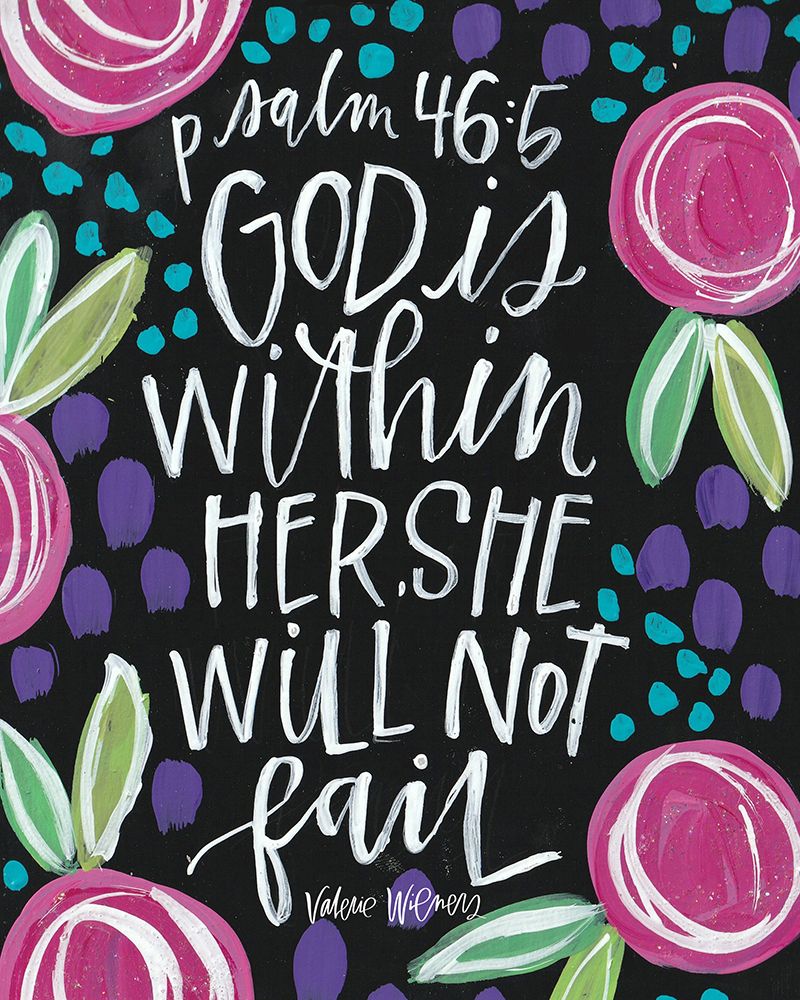 psalm 46:5
GOD is
within
HER, SHE
WILL NOT
fail
Valerie Wieners